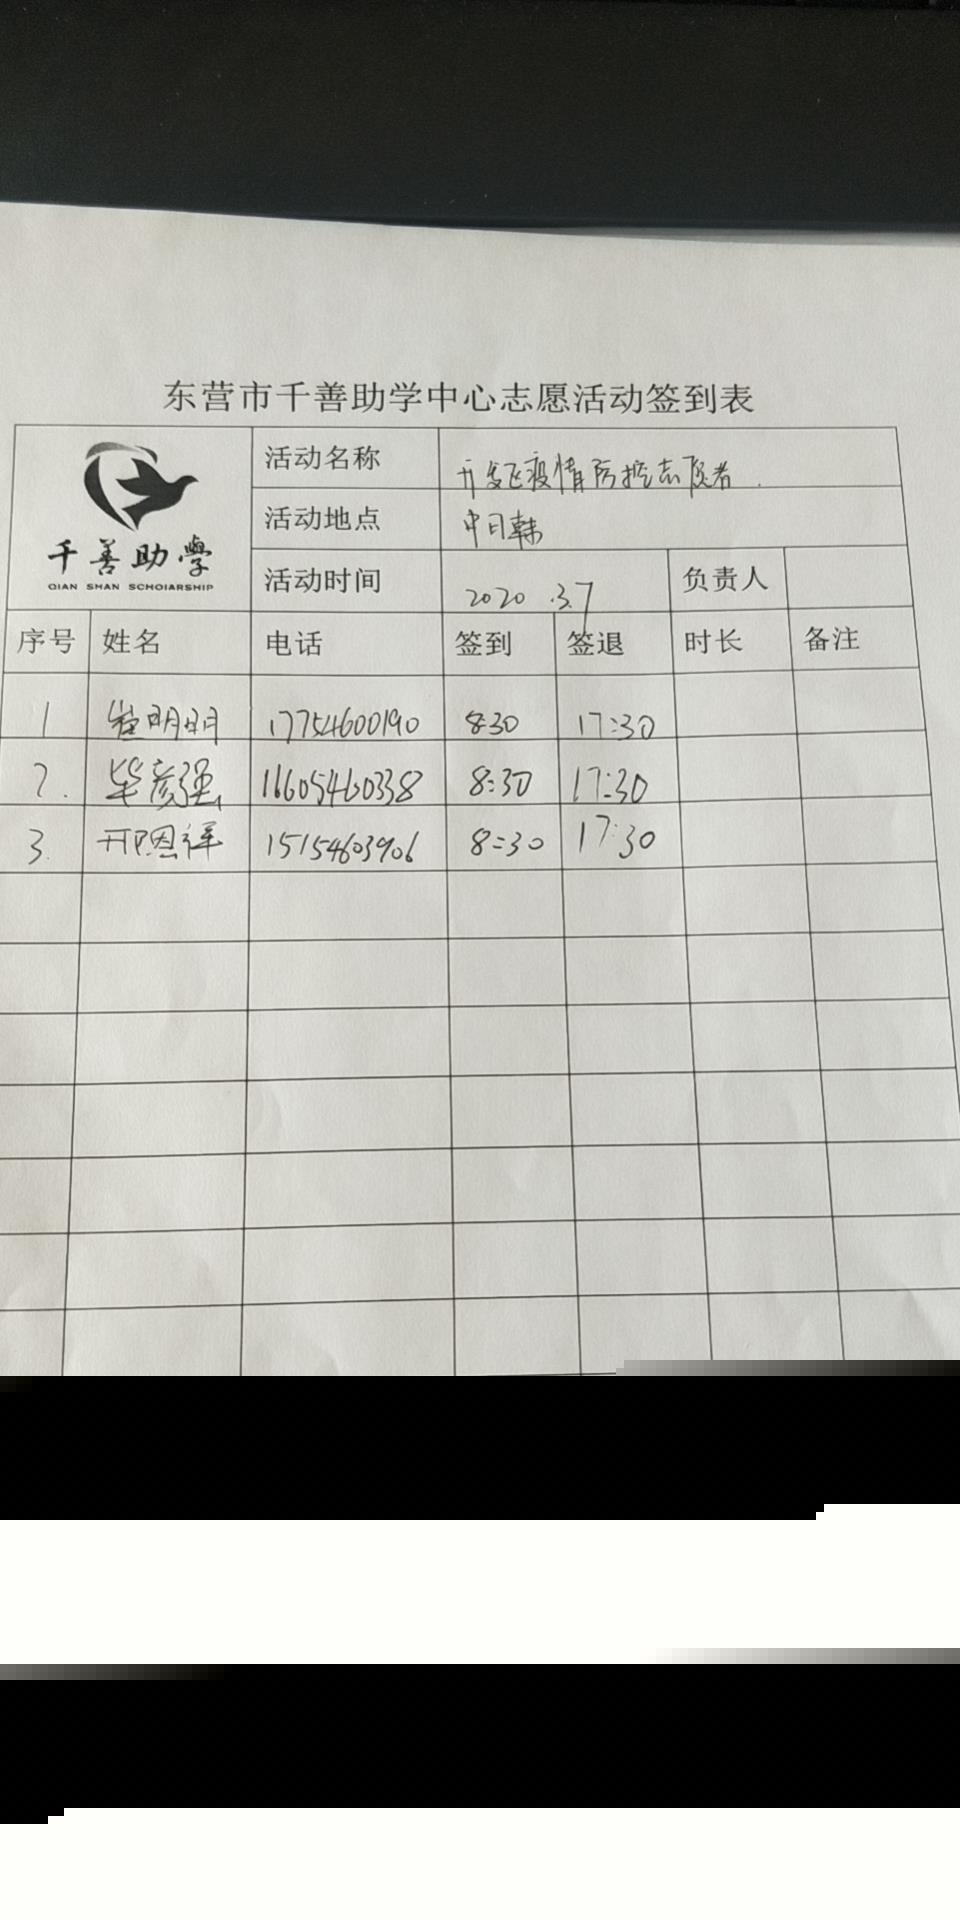 东营市千善助学中心志愿活动签到表
千善助學
QIAN SHAN SCHOIARSHIP
活动名称 开发区疫情防控志愿者.
活动地点 中日韩
活动时间 2020.3.7 负责人
序号 姓名 电话 签到 签退 时长 备注
1 崔明明 17754600190 8:30 17:30
2. 毕彦强 16605460338 8:30 17:30
3. 邢恩祥 15154603906 8:30 17:30